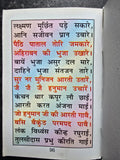 लक्ष्मण मूर्छित पड़े सकारे।
आनि सजीवन प्रान उबारे।
पैठि पाताल तोरि जमकारे।
अहिरावन की भुजा उखारे।
बायें भुजा असुर दल मारे।
दाहिने भुजा संतजन तारे।
सुर नर मुनिजन आरती उतारे।
जै जै जै हनुमान उचारे।
कंचन थार कपूर लौ छाई।
आरती करत अंजना माई।
जो हनुमान जी की आरती गावै।
बसि बैकुण्ठ परमपद पावै।
लंक विध्वंस कीन्ह रघुराई।
तुलसीदास प्रभु कीरति गाई।